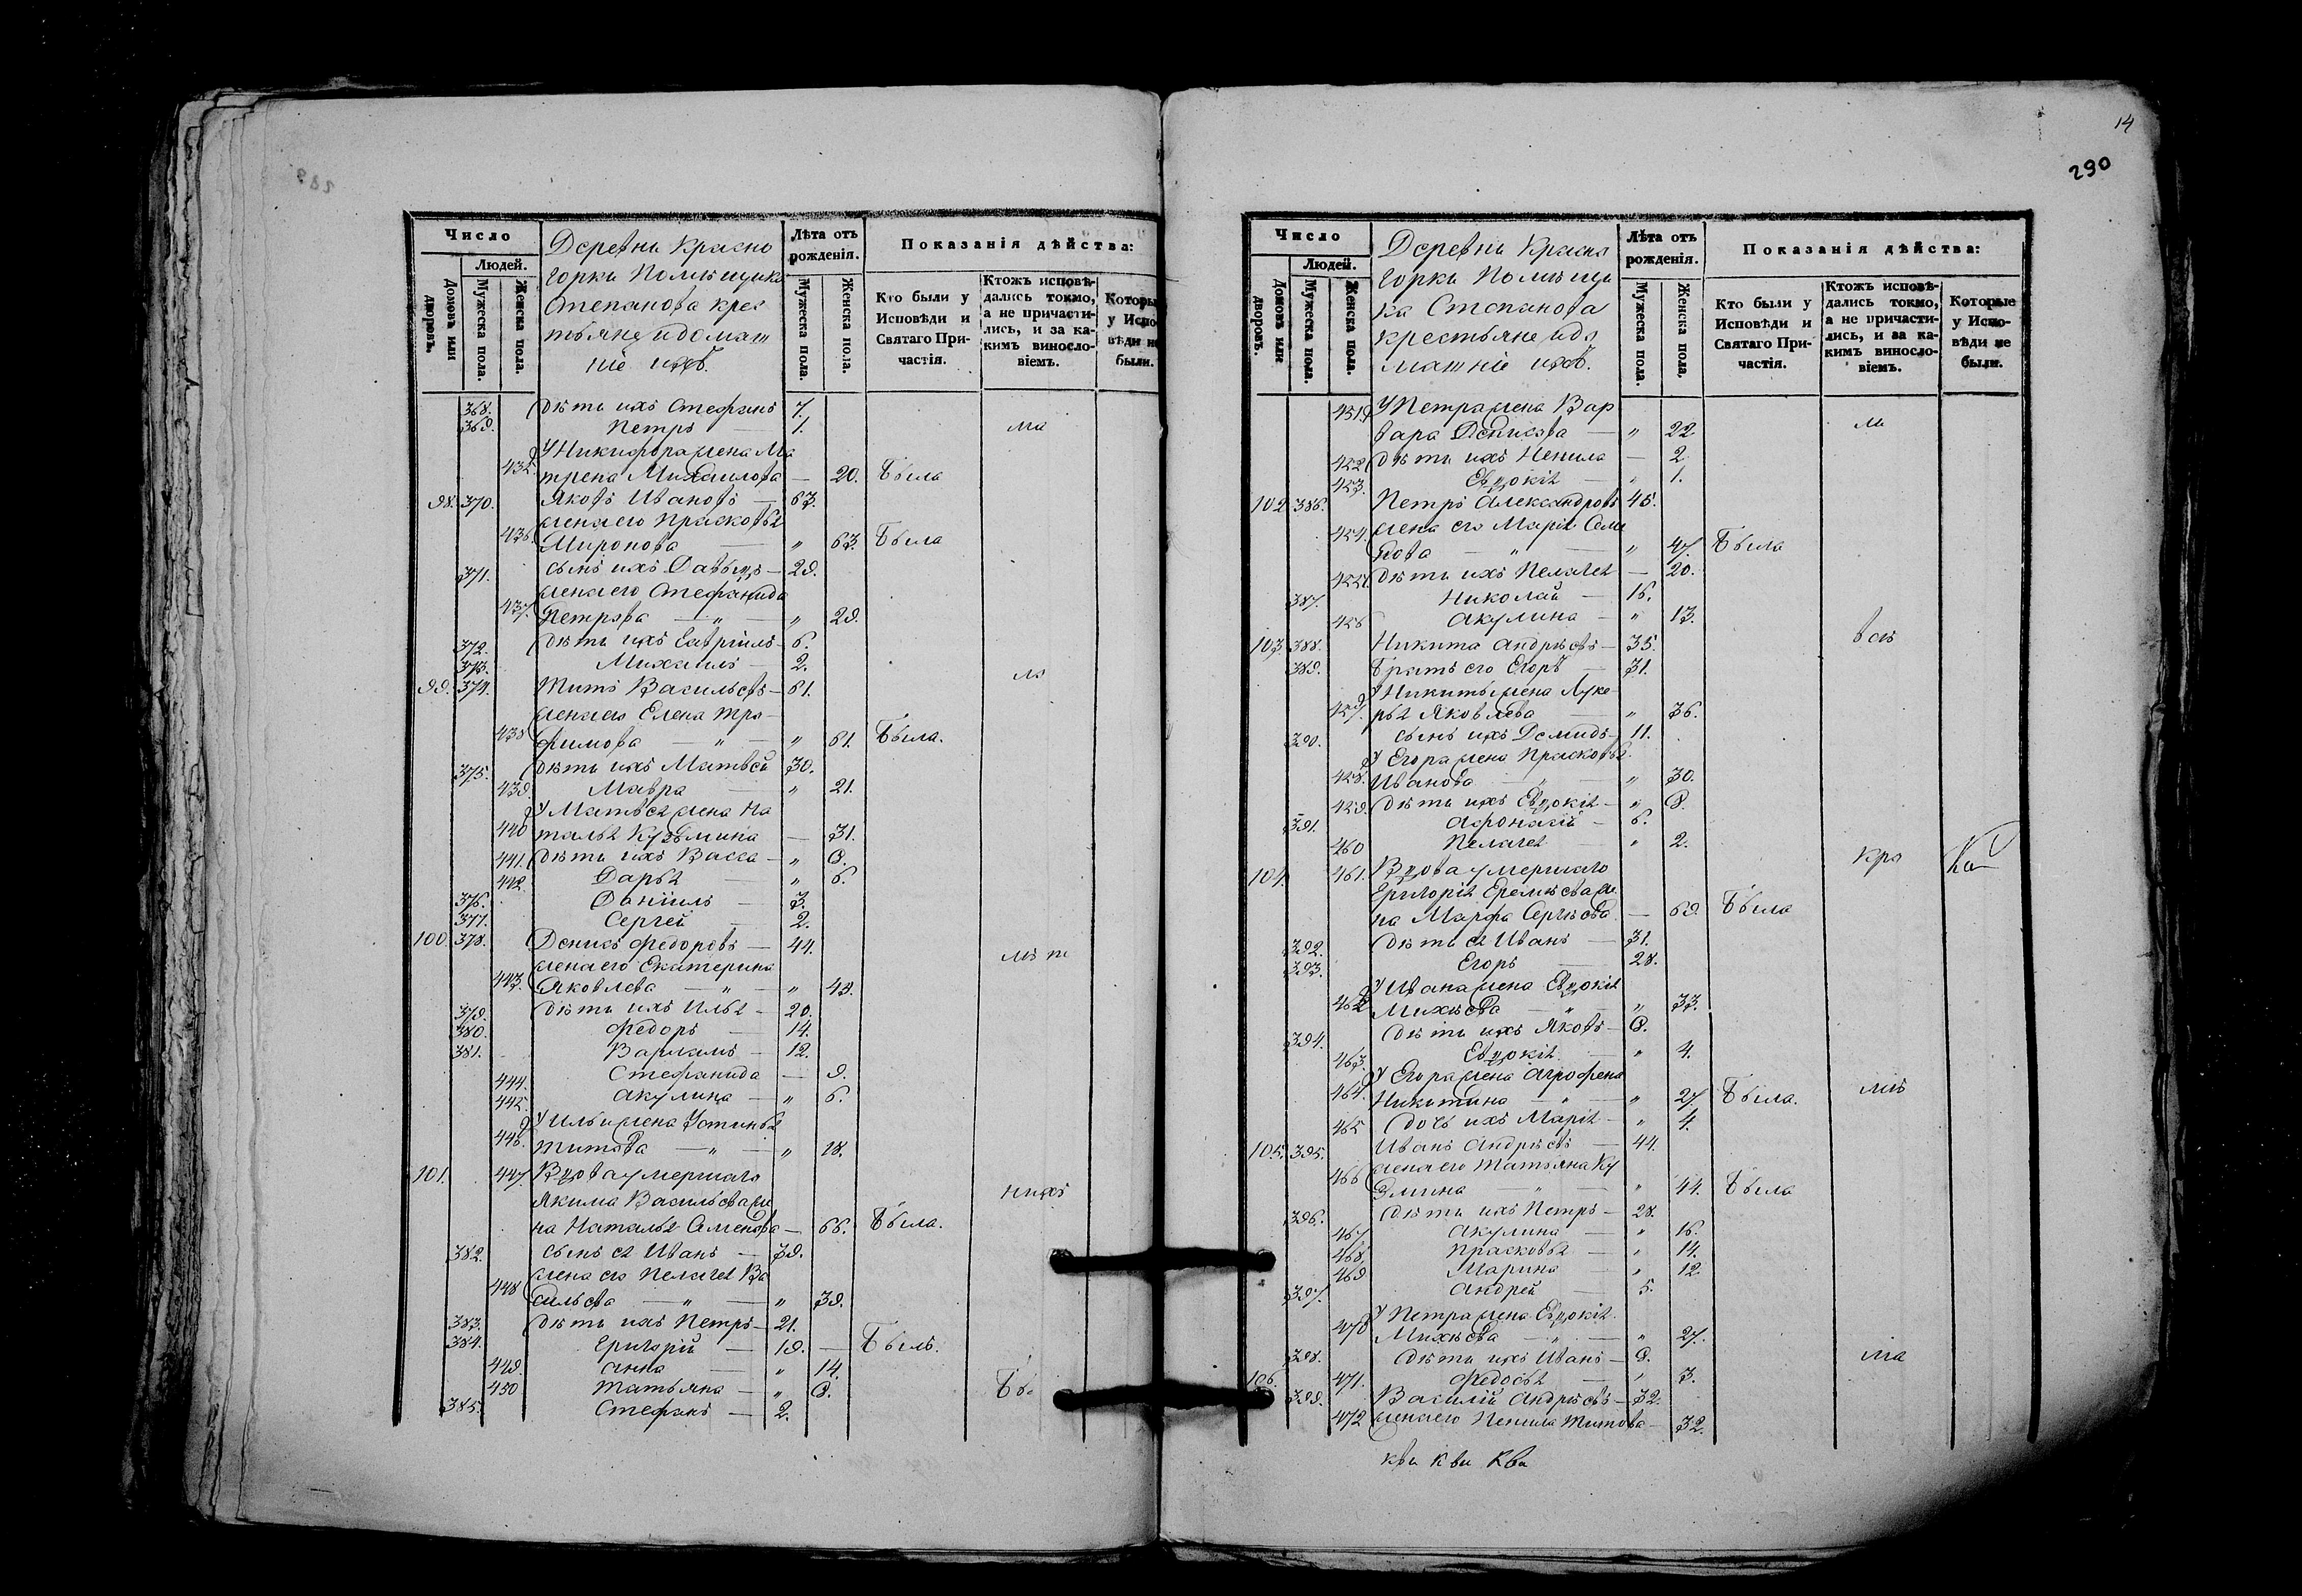 14
290
Число
Людей.
Домовъ или дворовъ.
Мужеска пола.
Женска пола.
Деревни Красно
горки Помѣщика
Степанова крес
тьяне и домаш
ніе ихъ.
Лѣта отъ рожденія.
Мужеска пола.
Женска пола.
Показанія дѣйства:
Кто были у Исповѣди и Святаго Причастія.
Ктожъ исповѣдались токмо, а не причастились, и за какимъ винословіемъ.
Которы у Испо вѣди не были.
368. Дѣти ихъ Стефанъ 7.
369. Петръ — 1.
У Никифора жена Ма
435. трена Михаилова — 20. Была
98. 370. Яковъ Ивановъ — 63.
жена его Прасковья
436. Миронова — " 63. Была
371. сынъ ихъ Давыдъ — 29.
жена его Стефанида
437. Петрова — " — " 29.
372. Дѣти ихъ Гавріилъ — 6.
373. Михаилъ — 2.
99. 374. Титъ Васильевъ — 61.
жена его Елена Тро-
438 фимова — " — " 61. Была.
375. Дѣти ихъ Матвей 30.
439. Мавра — " 21.
У Матвея жена На
440 талья Кузьмина — 31.
441. Дѣти ихъ Васса — " 8.
442. Дарья — " 6.
376. Даніилъ — 3.
377. Сергей — 2.
100. 378. Денисъ Федоровъ — 44.
жена его Екатерина
443. Яковлева — " — " 43.
379. Дѣти ихъ Илья — 20.
380. Федоръ — 14.
381. Варламъ — 12.
444. Стефанида — 9.
445. Акулина — " 6.
У Ильи жена Устинья
446. Титова — " — " 18.
101. 447. Вдова умершаго
Якима Васильева же
на Наталья Семенова — 66. Была.
382. сынъ ея Иванъ — 39.
жена его Пелагея Ва
448 сильева — " — " 39.
383. Дѣти ихъ Петръ — 21.
384. Григорій — 19. — Былъ.
449. Анна — " 14.
450 Татьяна — " 8.
385. Стефанъ — 2.
Число
Людей.
Домовъ или дворовъ.
Мужеска пола.
Женска пола.
Деревни Красно
горки Помѣщи
ка Степанова
крестьяне и до
машніе ихъ.
Лѣта отъ рожденія.
Мужеска пола.
Женска пола.
Показанія дѣйства:
Кто были у Исповѣди и Святаго Причастія.
Ктожъ исповѣдались токмо, а не причастились, и за какимъ винословіемъ.
Которые у Исповѣди не были.
451. У Петра жена Вар
вара Денисова — " 22
452 Дѣти ихъ Ненила — 2.
453. Евдокія — " 1.
102. 386. Петръ Александровъ 45.
454. жена его Марія Семе
нова — " — " 47. Была
455. Дѣти ихъ Пелагея — 20.
387. Николай — 16.
456 Акулина — " 13.
103 388. Никита Андрѣевъ — 35.
389. Братъ его Егоръ — 31.
У Никиты жена Луке-
457. рья Яковлева — " 36.
390. сынъ ихъ Демидъ — 11.
У Егора жена Прасковья
458. Иванова — " — " 30.
459. Дѣти ихъ Евдокія — " 8.
391. Афонасій — 6.
460 Пелагея — " 2.
104. 461. Вдова умершаго
Григорія Еремѣева же
на Марфа Сергѣева. — 69. Была
392. Дѣти ея Иванъ — 31.
393. Егоръ — 28.
У Ивана жена Евдокія
462 Михѣева — " — " 33.
394. Дѣти ихъ Яковъ — 8.
463. Евдокія — " 4.
У Егора жена Агрофена
464. Никитина — " — " 27 Была.
465 Дочь ихъ Марія — " 4.
105. 395. Иванъ Андрѣевъ — 44.
жена его Татьяна Ку
466 змина — " — " 44. Была
396. Дѣти ихъ Петръ — 28.
467 Акулина — " 16.
468. Прасковья — " 14.
469 Марина — " 12.
397. Андрей — 5.
У Петра жена Евдокія
470 Михѣева — " — " 27.
398. Дѣти ихъ Иванъ — 8.
471. Федосья — " 3.
106. 399. Василій Андрѣевъ — 32.
472 жена его Ненила Титова — 32.